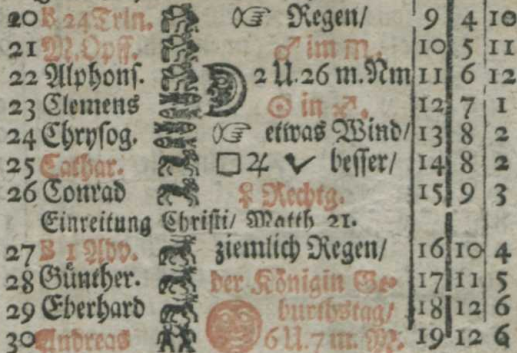 20 B 24 Trin. ☞ Regen/ 9 4 10
21 M. Opff. ♂ im ♏. 10 5 11
22 Alphonſ. 2 U. 26 m. Nm 11 6 12
23 Clemens ☉ in ♐. 12 7 1
24 Chryſog. ☞ etwas Wind/ 13 8 2
25 Cathar. □ ♃ ✓ beſſer/ 14 8 2
26 Conrad ☿ Rechtg. 15 9 3
Einreitung Chriſti/ Matth 21.
27 B 1 Adv. ziemlich Regen/ 16 10 4
28 Günther. der Königin Ge- 17 11 5
29 Eberhard burthstag/ 18 12 6
30 Andreas 6 U. 7 m. V. 19 12 6